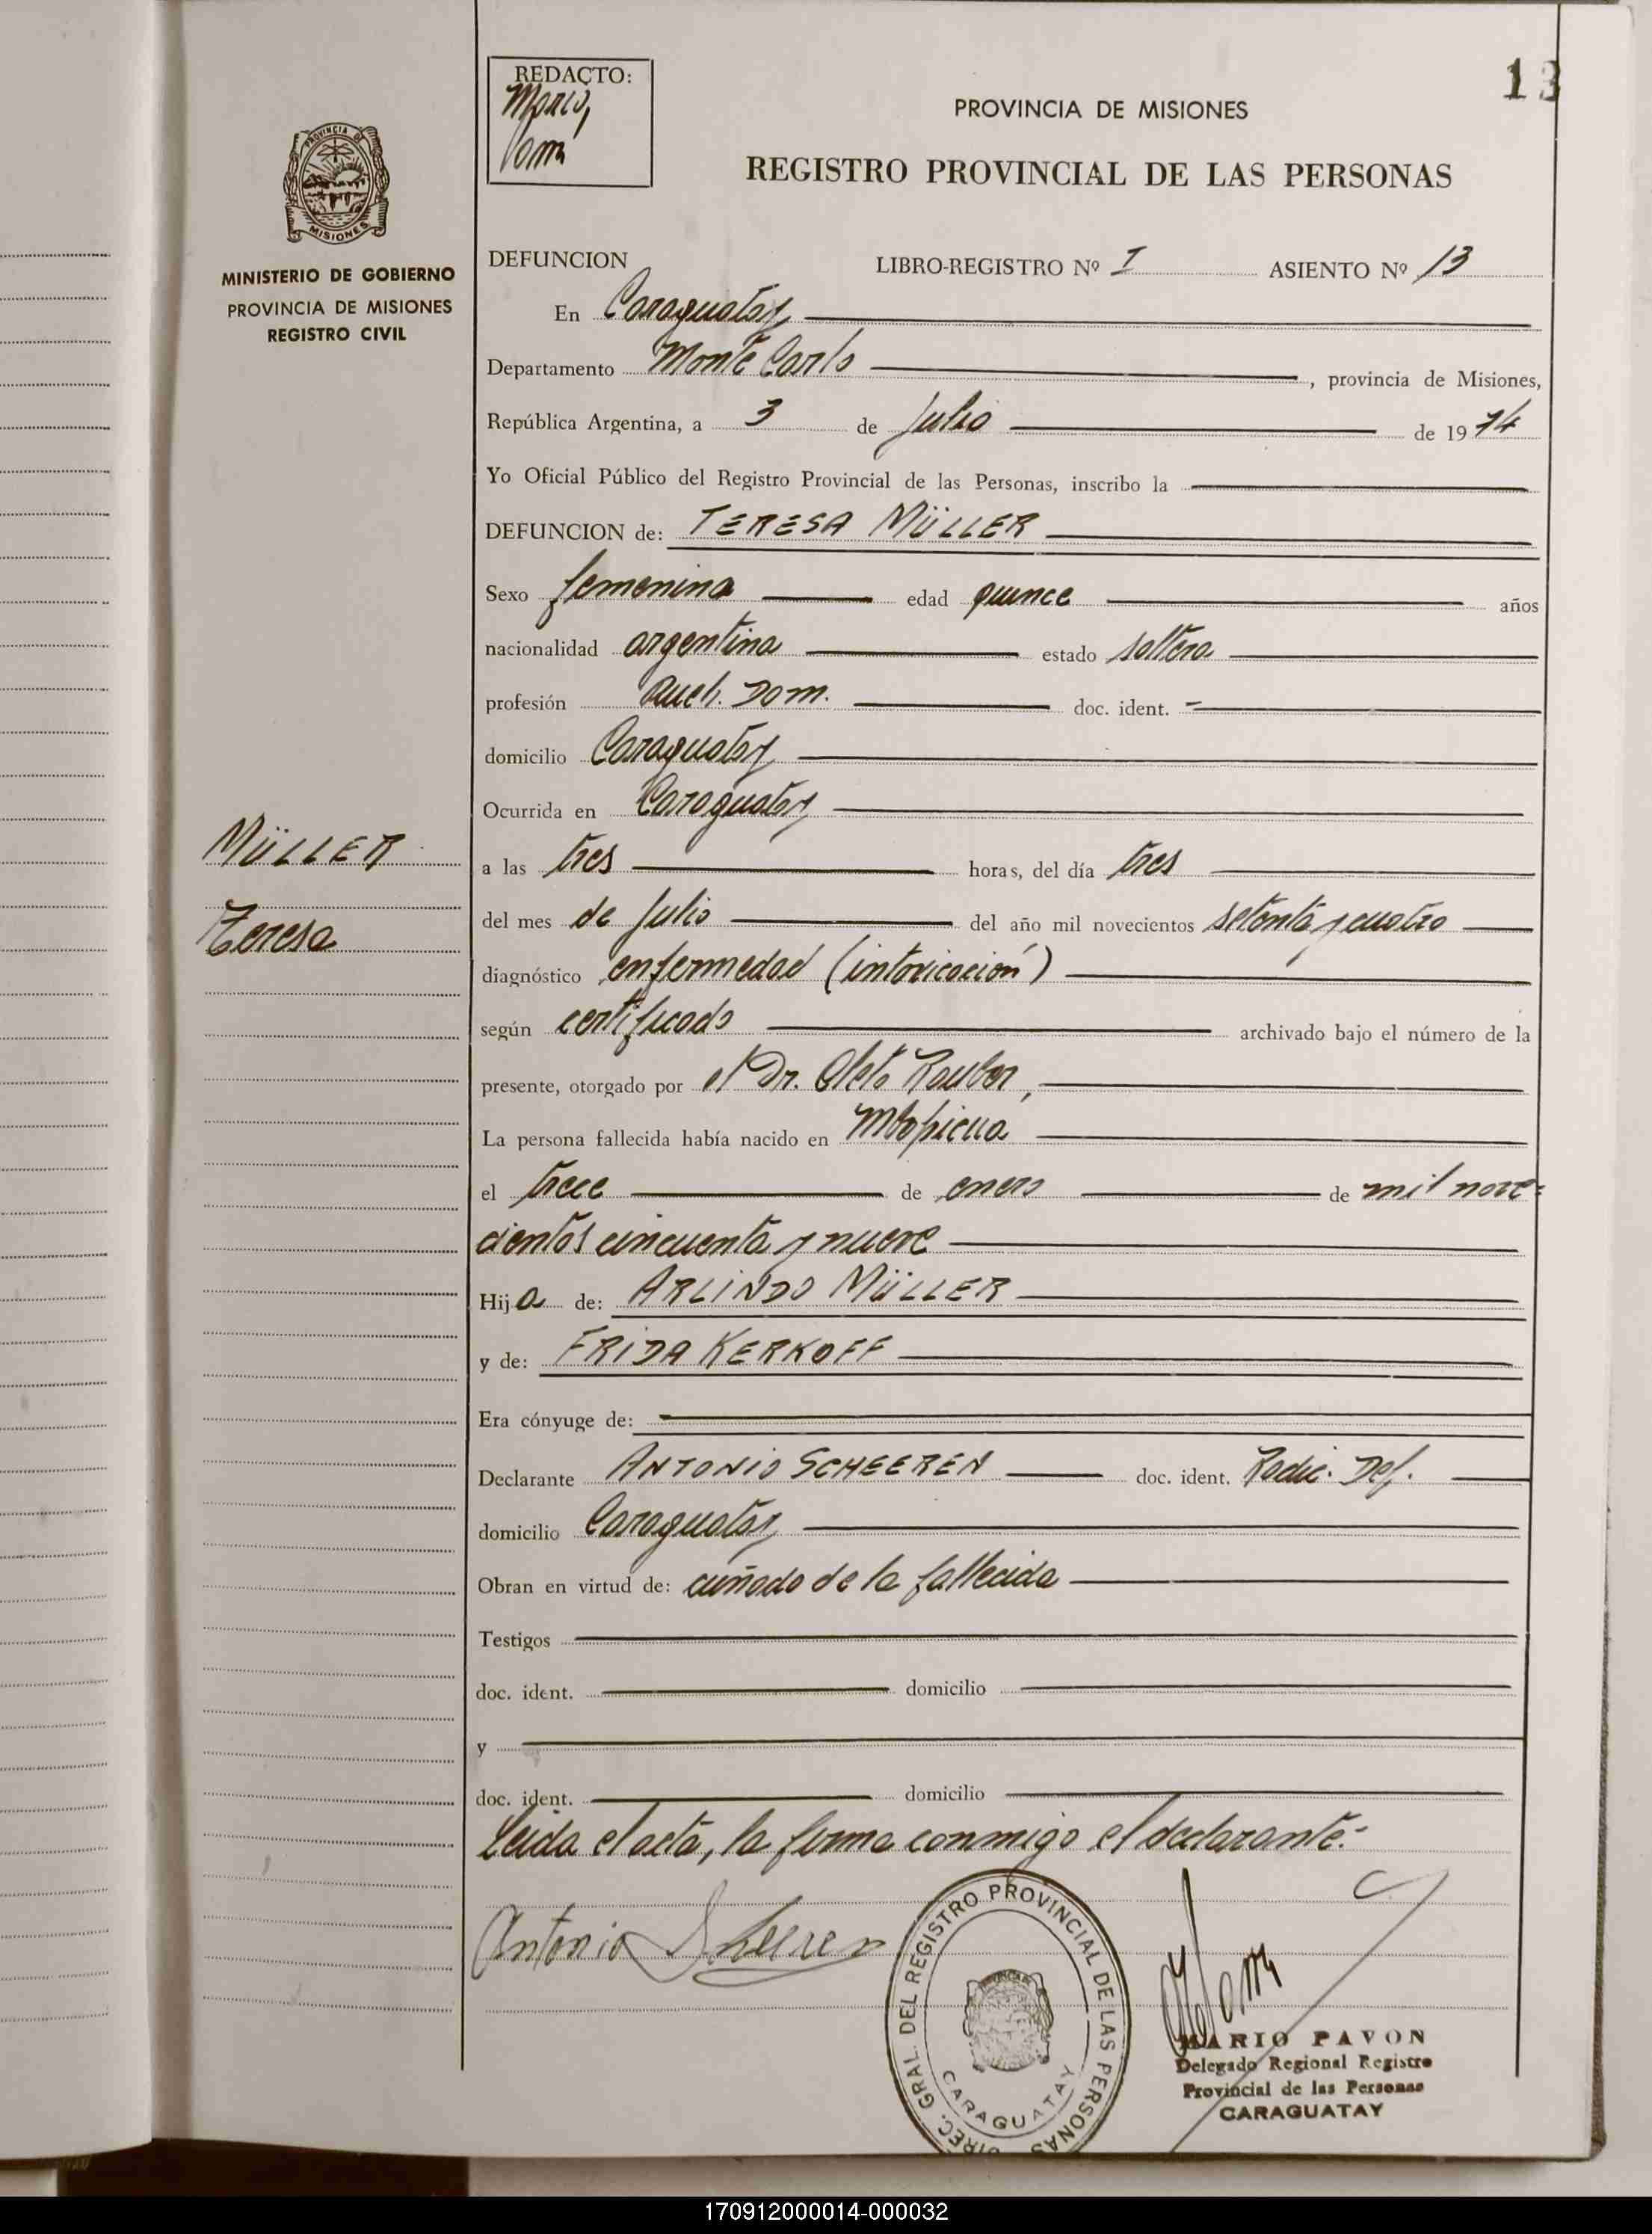 13
REDACTO:
PROVINCIA DE MISIONES
REGISTRO PROVINCIAL DE LAS PERSONAS
PROVINCIA DE
MISIONES
MINISTERIO DE GOBIERNO
PROVINCIA DE MISIONES
REGISTRO CIVIL
MÜLLER
Teresa
DEFUNCION LIBRO-REGISTRO Nº I ASIENTO Nº 13
En Caraguatay
Departamento Monte Carlo, provincia de Misiones,
República Argentina, a 3 de Julio de 1974
Yo Oficial Público del Registro Provincial de las Personas, inscribo la
DEFUNCION de: TERESA MÜLLER
Sexo femenina edad quince años
nacionalidad argentina estado soltera
profesión Queh. Dom. doc. ident. -
domicilio Caraguatay
Ocurrida en Caraguatay
a las tres horas, del día tres
del mes de Julio del año mil novecientos setenta y cuatro
diagnóstico enfermedad (intoxicación)
según certificado archivado bajo el número de la
presente, otorgado por el Dr. Rauber,
La persona fallecida había nacido en Mbopicua
el trece de enero de mil nove=
cientos cincuenta y nueve
Hija de: ARLINDO MÜLLER
y de: FRIDA KERKOFF
Era cónyuge de:
Declarante ANTONIO SCHEEREN doc. ident. Radic. Def.
domicilio Caraguatay
Obran en virtud de: cuñado de la fallecida
Testigos
doc. ident. domicilio
y
doc. ident. domicilio
Leida el acta, la firma conmigo el declarante.-
Antonio Scheeren
DIREC. GRAL. DEL REGISTRO PROVINCIAL DE LAS PERSONAS
CARAGUATAY
MARIO PAVON
Delegado Regional Registro
Provincial de las Personas
CARAGUATAY
170912000014-000032